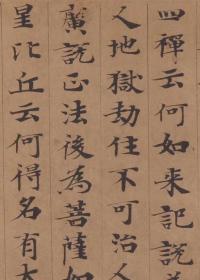 四禪云何如来記説
人地獄劫住不可治人
廣説正法後為菩薩如
是比丘云何得名有大